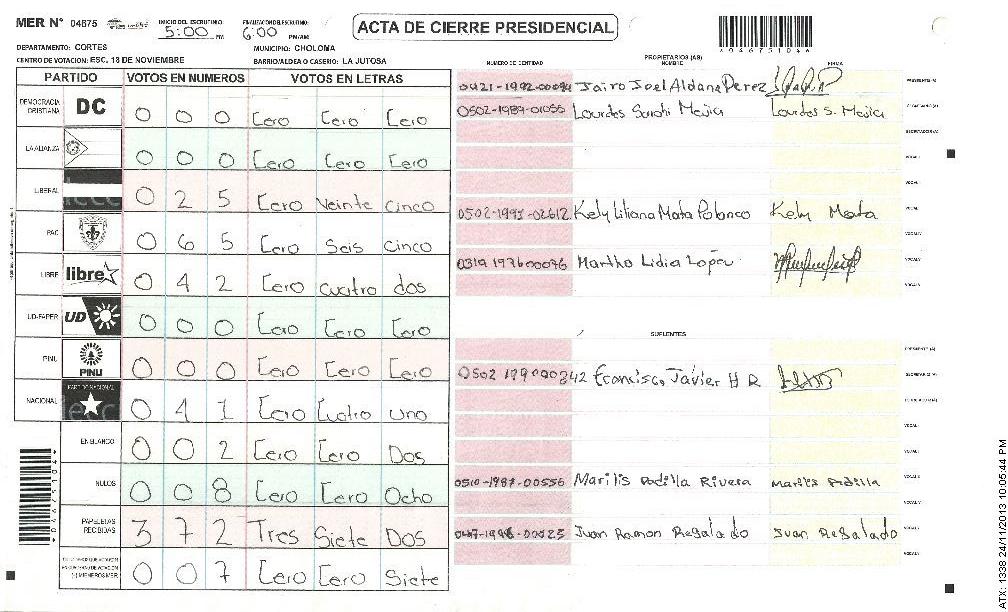 MER N° 04675
INICIO DEL ESCRUTINIO:
5:00 PM
FINALIZACION ESCRUTINIO:
6:00 PM/AM
ACTA DE CIERRE PRESIDENCIAL
DEPARTAMENTO: CORTES
MUNICIPIO: CHOLOMA
CENTRO DE VOTACION: ESC. 18 DE NOVIEMBRE
BARRIO/ALDEA O CASERIO: LA JUTOSA
PARTIDO VOTOS EN NUMEROS VOTOS EN LETRAS
DEMOCRACIA CRISTIANA DC 0 0 0 Cero Cero Cero
LA ALIANZA 0 0 0 Cero Cero Cero
LIBERAL 0 2 5 Cero Veinte Cinco
PAC 0 6 5 Cero Seis Cinco
LIBRE libre 0 4 2 Cero cuatro dos
UD-FAPER UD 0 0 0 Cero Cero Cero
PINU PINU 0 0 0 Cero Cero Cero
NACIONAL PARTIDO NACIONAL 0 4 1 Cero Cuatro uno
EN BLANCO 0 0 2 Cero Cero Dos
NULOS 0 0 8 Cero Cero Ocho
PAPELETAS RECIBIDAS 3 7 2 Tres Siete Dos
0 0 7 Cero Cero Siete
NUMERO DE IDENTIDAD
PROPIETARIOS (AS)
NOMBRE
FIRMA
0421-1992-00094 Jairo Joel Aldana Perez PRESIDENTE (A)
0502-1989-01055 Lourdes Sarahi Mejia Lourdes S. Mejia SECRETARIO (A)
0502-1991-02612 Kely Liliana Mata Polanco Kely Mata
0319 197600076 Martha Lidia Lopez
SUPLENTES
PRESIDENTE (A)
Francisco Javier H R SECRETARIO (A)
0510-1987-00556 Marilis Padilla Rivera Marilis Padilla
Juan Ramon Regalado Juan Regalado
ATX: 1338 24/11/2013 10:05:44 PM